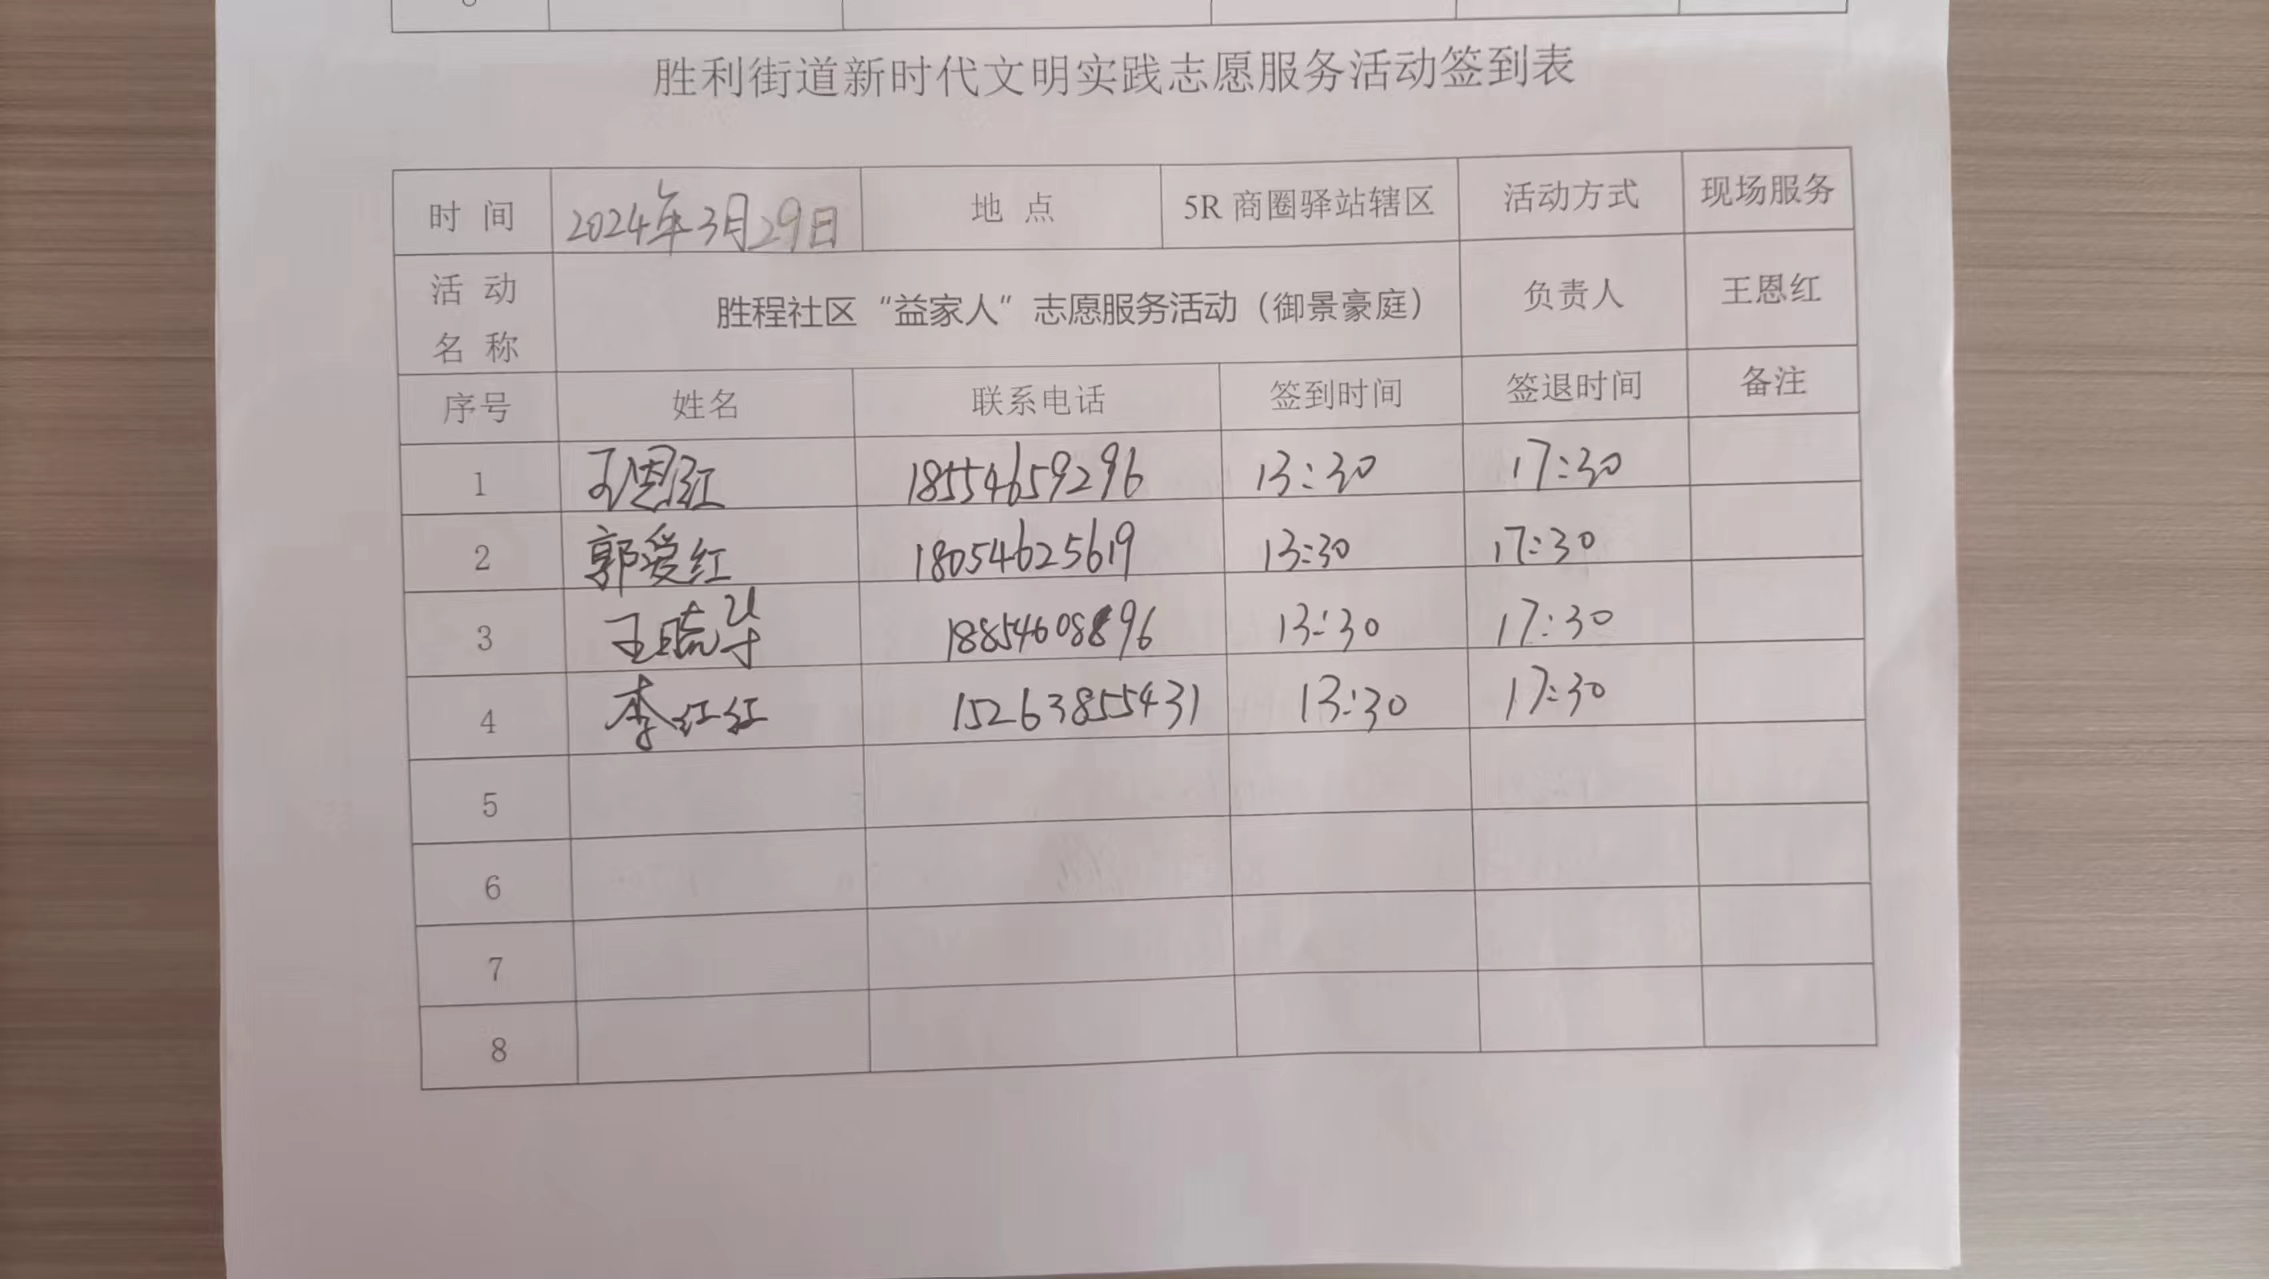 胜利街道新时代文明实践志愿服务活动签到表
时 间 2024年3月29日 地 点 5R 商圈驿站辖区 活动方式 现场服务
活 动 名 称 胜程社区“益家人”志愿服务活动（御景豪庭） 负责人 王恩红
序号 姓名 联系电话 签到时间 签退时间 备注
1 王恩红 18554659296 13:30 17:30
2 郭爱红 18054625619 13:30 17:30
3 王晓华 18854608896 13:30 17:30
4 李红红 15263855431 13:30 17:30
5
6
7
8